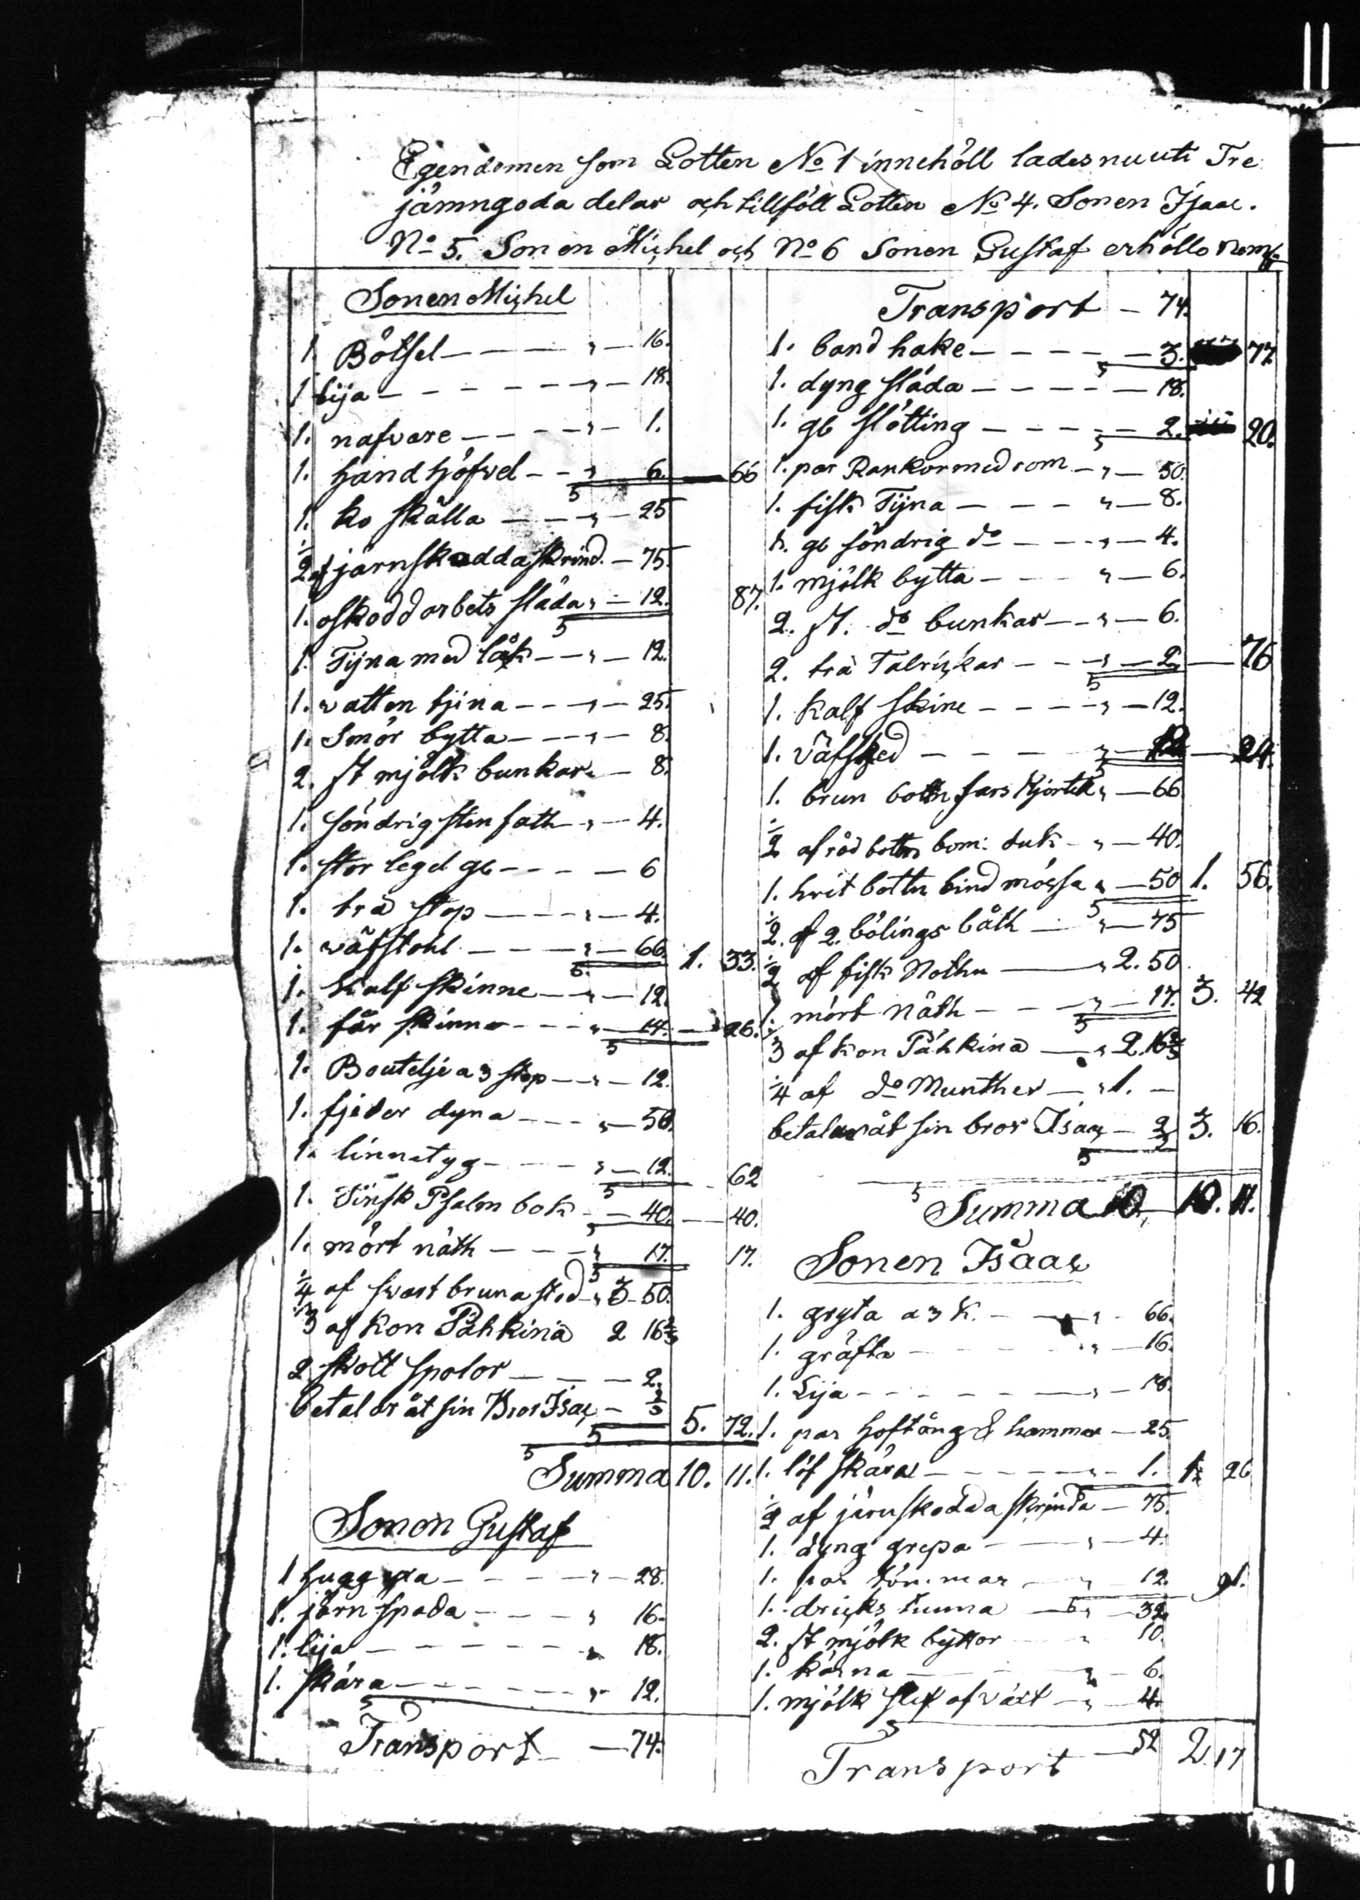 Egendomen som Lotten No 1 innehöll lades nu uti Tre
jämngoda delar och tillföll Lotten No 4. Sonen Isaac.
No 5. Sonen Michel och No 6 Sonen Gustaf erhöllo neml:
Sonen Michel
1. Bötsel — " — 16.
1 lija — " — 18.
1. nafvare — " — 1.
1. handhjöfvel — " 6. — 66
1. ko skälla — " — 25
1/2 af järnskodda skrind. — 75.
1. oskodd arbets släda " — 12. 87.
1. Tijna med låk — " — 12.
1. vatten tjina — " — 25.
1. Smör bytta — " — 8.
2. st mjölk bunkar " — 8.
1. söndrig stenfath — " — 4.
1. stor legel gl — 6
1. trä stop — " — 4.
1. väfstohl — " — 66 1. 33.
1. kalf skinne — " — 12.
1. får skinn — " — 14 — 26.
1. Boutelje a 3 stop — " — 12.
1. fjeder dyna — " — 50.
1. linnetyg — " — 12. 62
1. Finsk Psalm bok — " — 40. — 40.
1. mört näth — " 17. 17.
1/4 af svart bruna stod — " 3 — 50.
1/3 af kon Påhkina 2 16 2/3
2 skott spolor — 2.
betalar åt sin Bror Isac — 2/3 5. 72.
Summa 10. 11.
Sonon Gustaf
1 hugg yxa — " — 28.
1. järn spada — " 16.
1. lija — " 18.
1. skära — " 12.
Transport — 74.
Transport — 74.
1. band hake — — 3. 77.
1. dyng släda — 18.
1. gl slötting — 2. 20.
1. par Rankor med rom — " — 50.
1. fisk Tijna — " — 8.
1. gl söndrig do — " — 4.
1. mjölk bytta — " — 6.
2. st. do bunkar — " — 6.
2. trä Talrickar — " — 2. — 76
1. kalf skine — " — 12.
1. Väfsked — " — 12 — 24.
1. brun bottn fars Kjortel " — 66
1/2 af röd bottn bom: duk — " — 40.
1. hvit bottn bind mössa " — 50 1. 56.
1/2. af 2. bölings båth — " — 75
1/2 af fisk Nothn — " 2. 50
1 mört näth — " — 17. 3. 42
1/3 af kon Påhkina — " 2. 16 2/3
1/4 af do Munther — " 1. —
betalar åt sin bror Isac — 2/3 3. 16.
Summa 10. 11.
Sonen Isaac
1. gryta a 3 k. — " 66.
1. gräfta — " — 16.
1. Lija — " — 18.
1. par hoftång & hammar — 25
1. löf skära — " — 1. 1. 26
1/2 af järnskodda skrinda — 75.
1. dyng grepa — " 4.
1. par tömmar — " 12. 91.
1. dricks tunna — " — 32.
2. st mjölk byttor " 10.
1. kärna — " 6.
1. mjölk slef af växt — " 4.
Transport — 52 2. 17